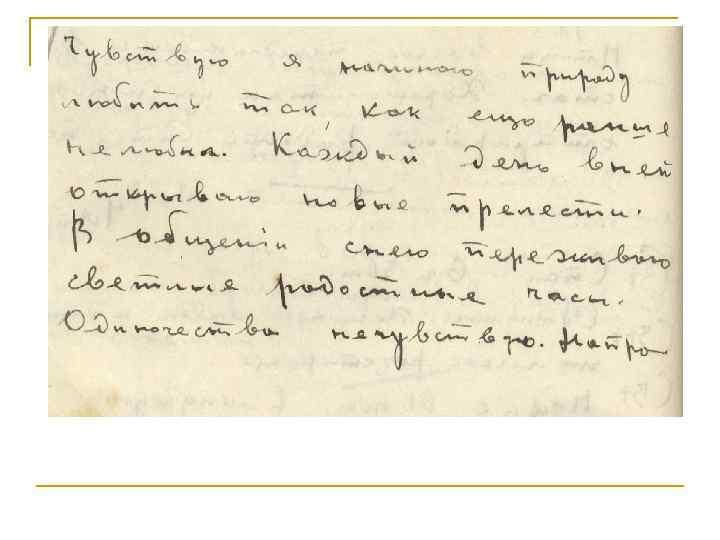 Чувствую я начинаю природу
любить так, как ещо раньше
не любил. Каждый день вней
открываю новые прелести.
В общении снею переживаю
светлые радостные часы.
Одиночества нечувствую. Напро